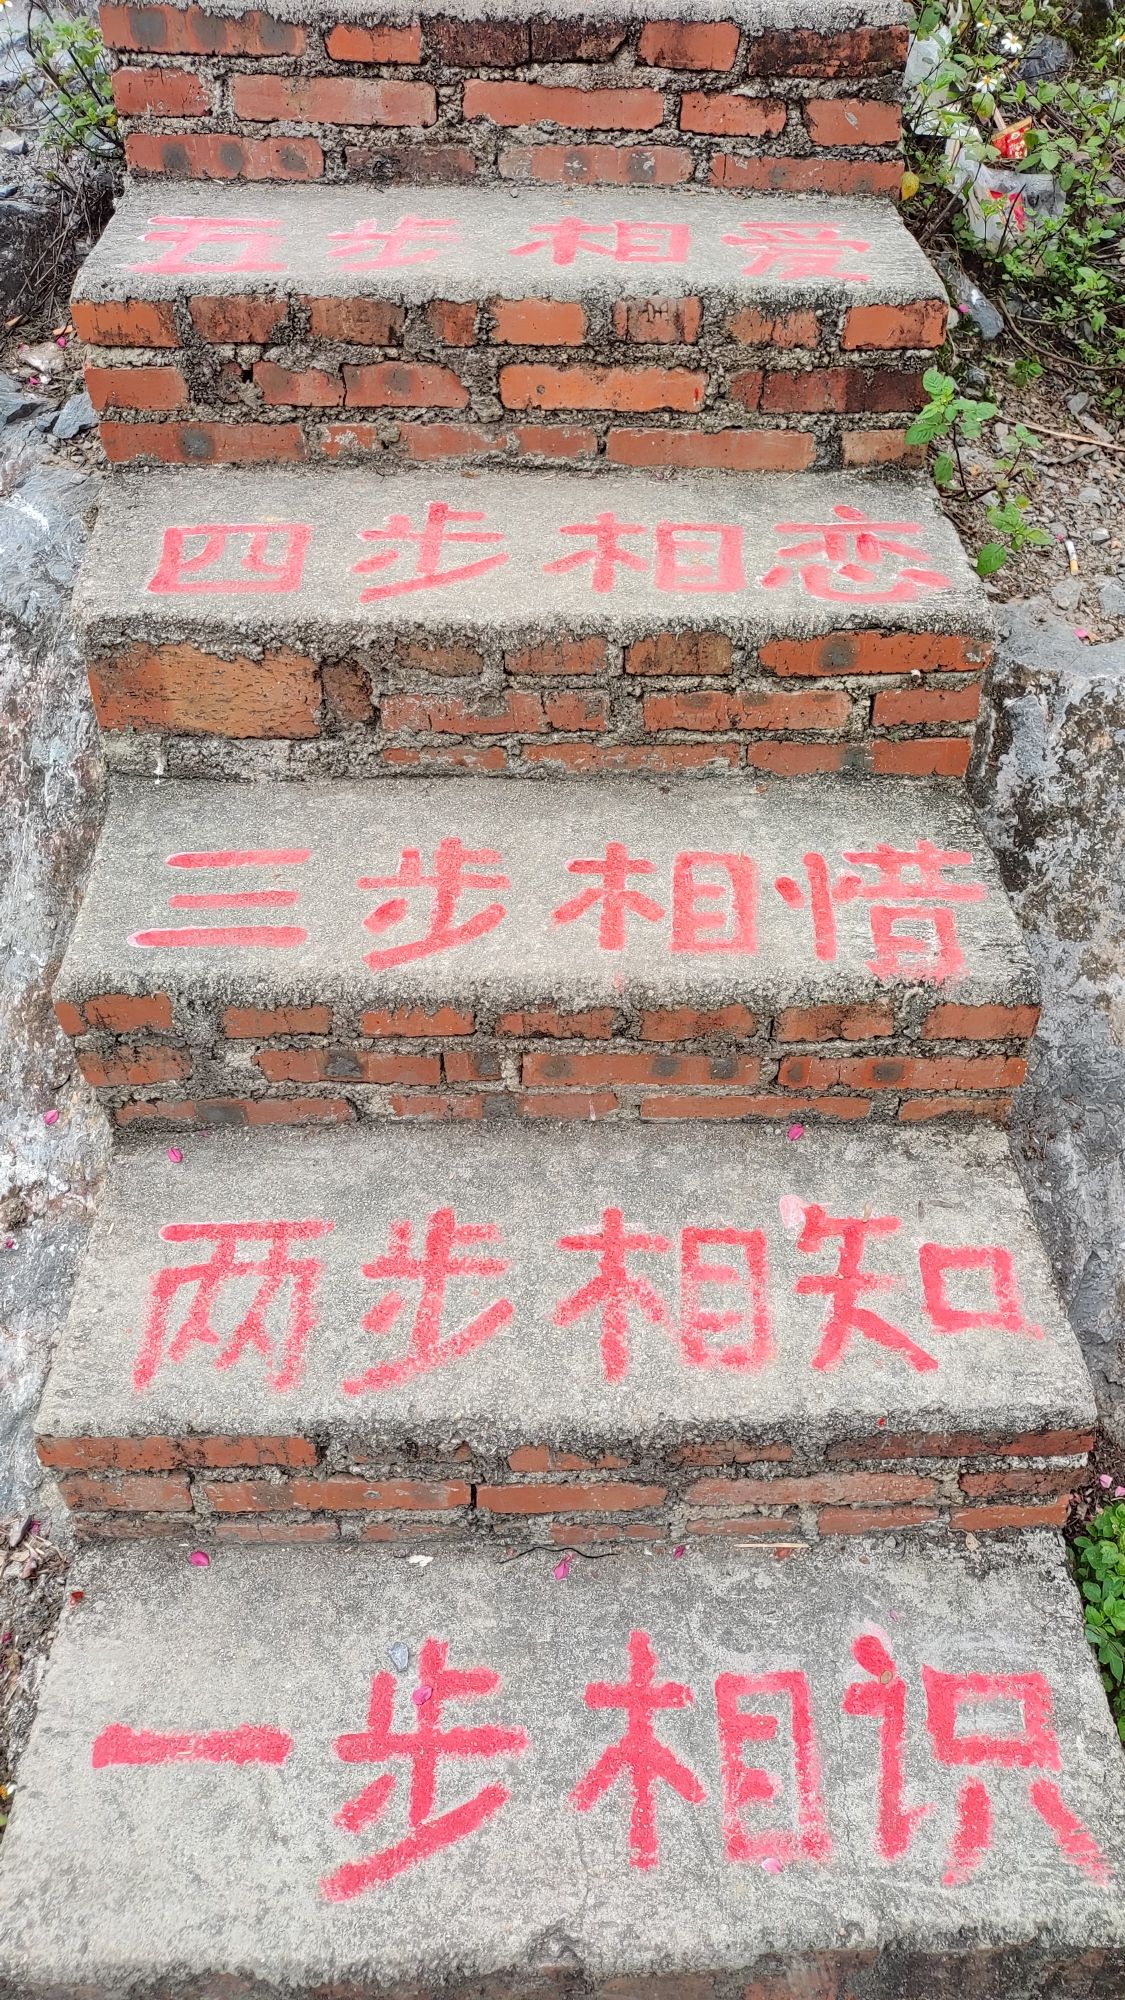 五步相爱
四步相恋
三步相惜
两步相知
一步相识